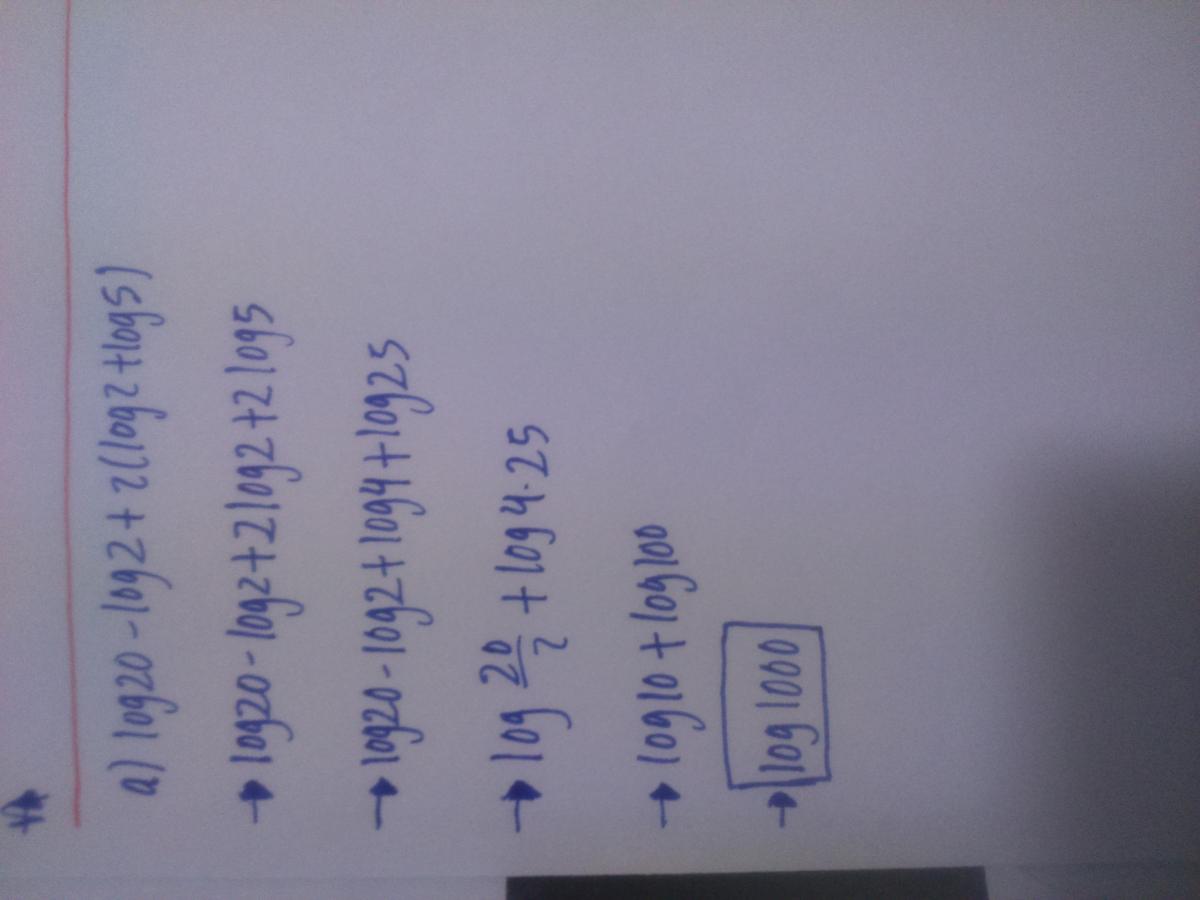 a) log20 - log2 + 2(log2 + log5)
→ log20 - log2 + 2log2 + 2log5
→ log20 - log2 + log4 + log25
→ log 20/2 + log4·25
→ log10 + log100
→ log1000